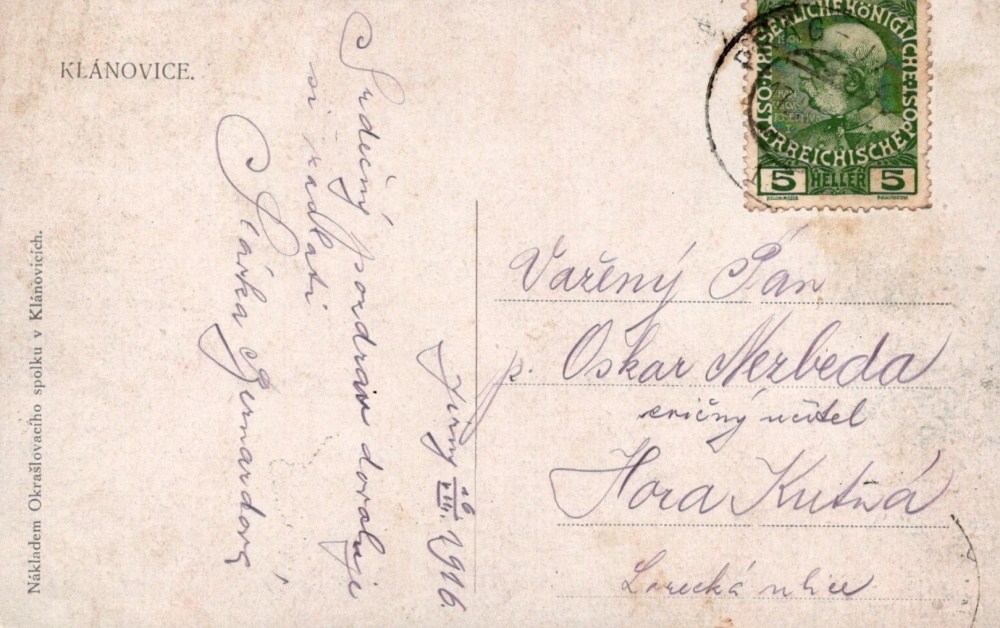 KLÁNOVICE.
Nákladem Okrašlovacího spolku v Klánovicích.
Srdečný pozdrav dovoluje
si zadlati
Slávka Bernardová
Jirny 26/VIII. 1916.
KAISERLICHE KÖNIGLICHE ÖSTERREICHISCHE POST
5 HELLER 5
Važený Pán
p. Oskar Nezbeda
cvičný učitel
Hora Kutná
Lorecká ulice